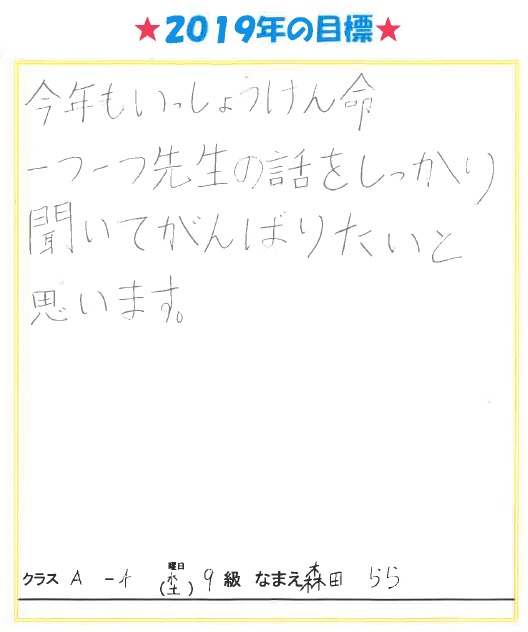 ★2019年の目標★
今年もいっしょうけん命
一つ一つ先生の話をしっかり
聞いてがんばりたいと
思います。
クラス A -4 曜日(水土) 9級 なまえ 森田 らら